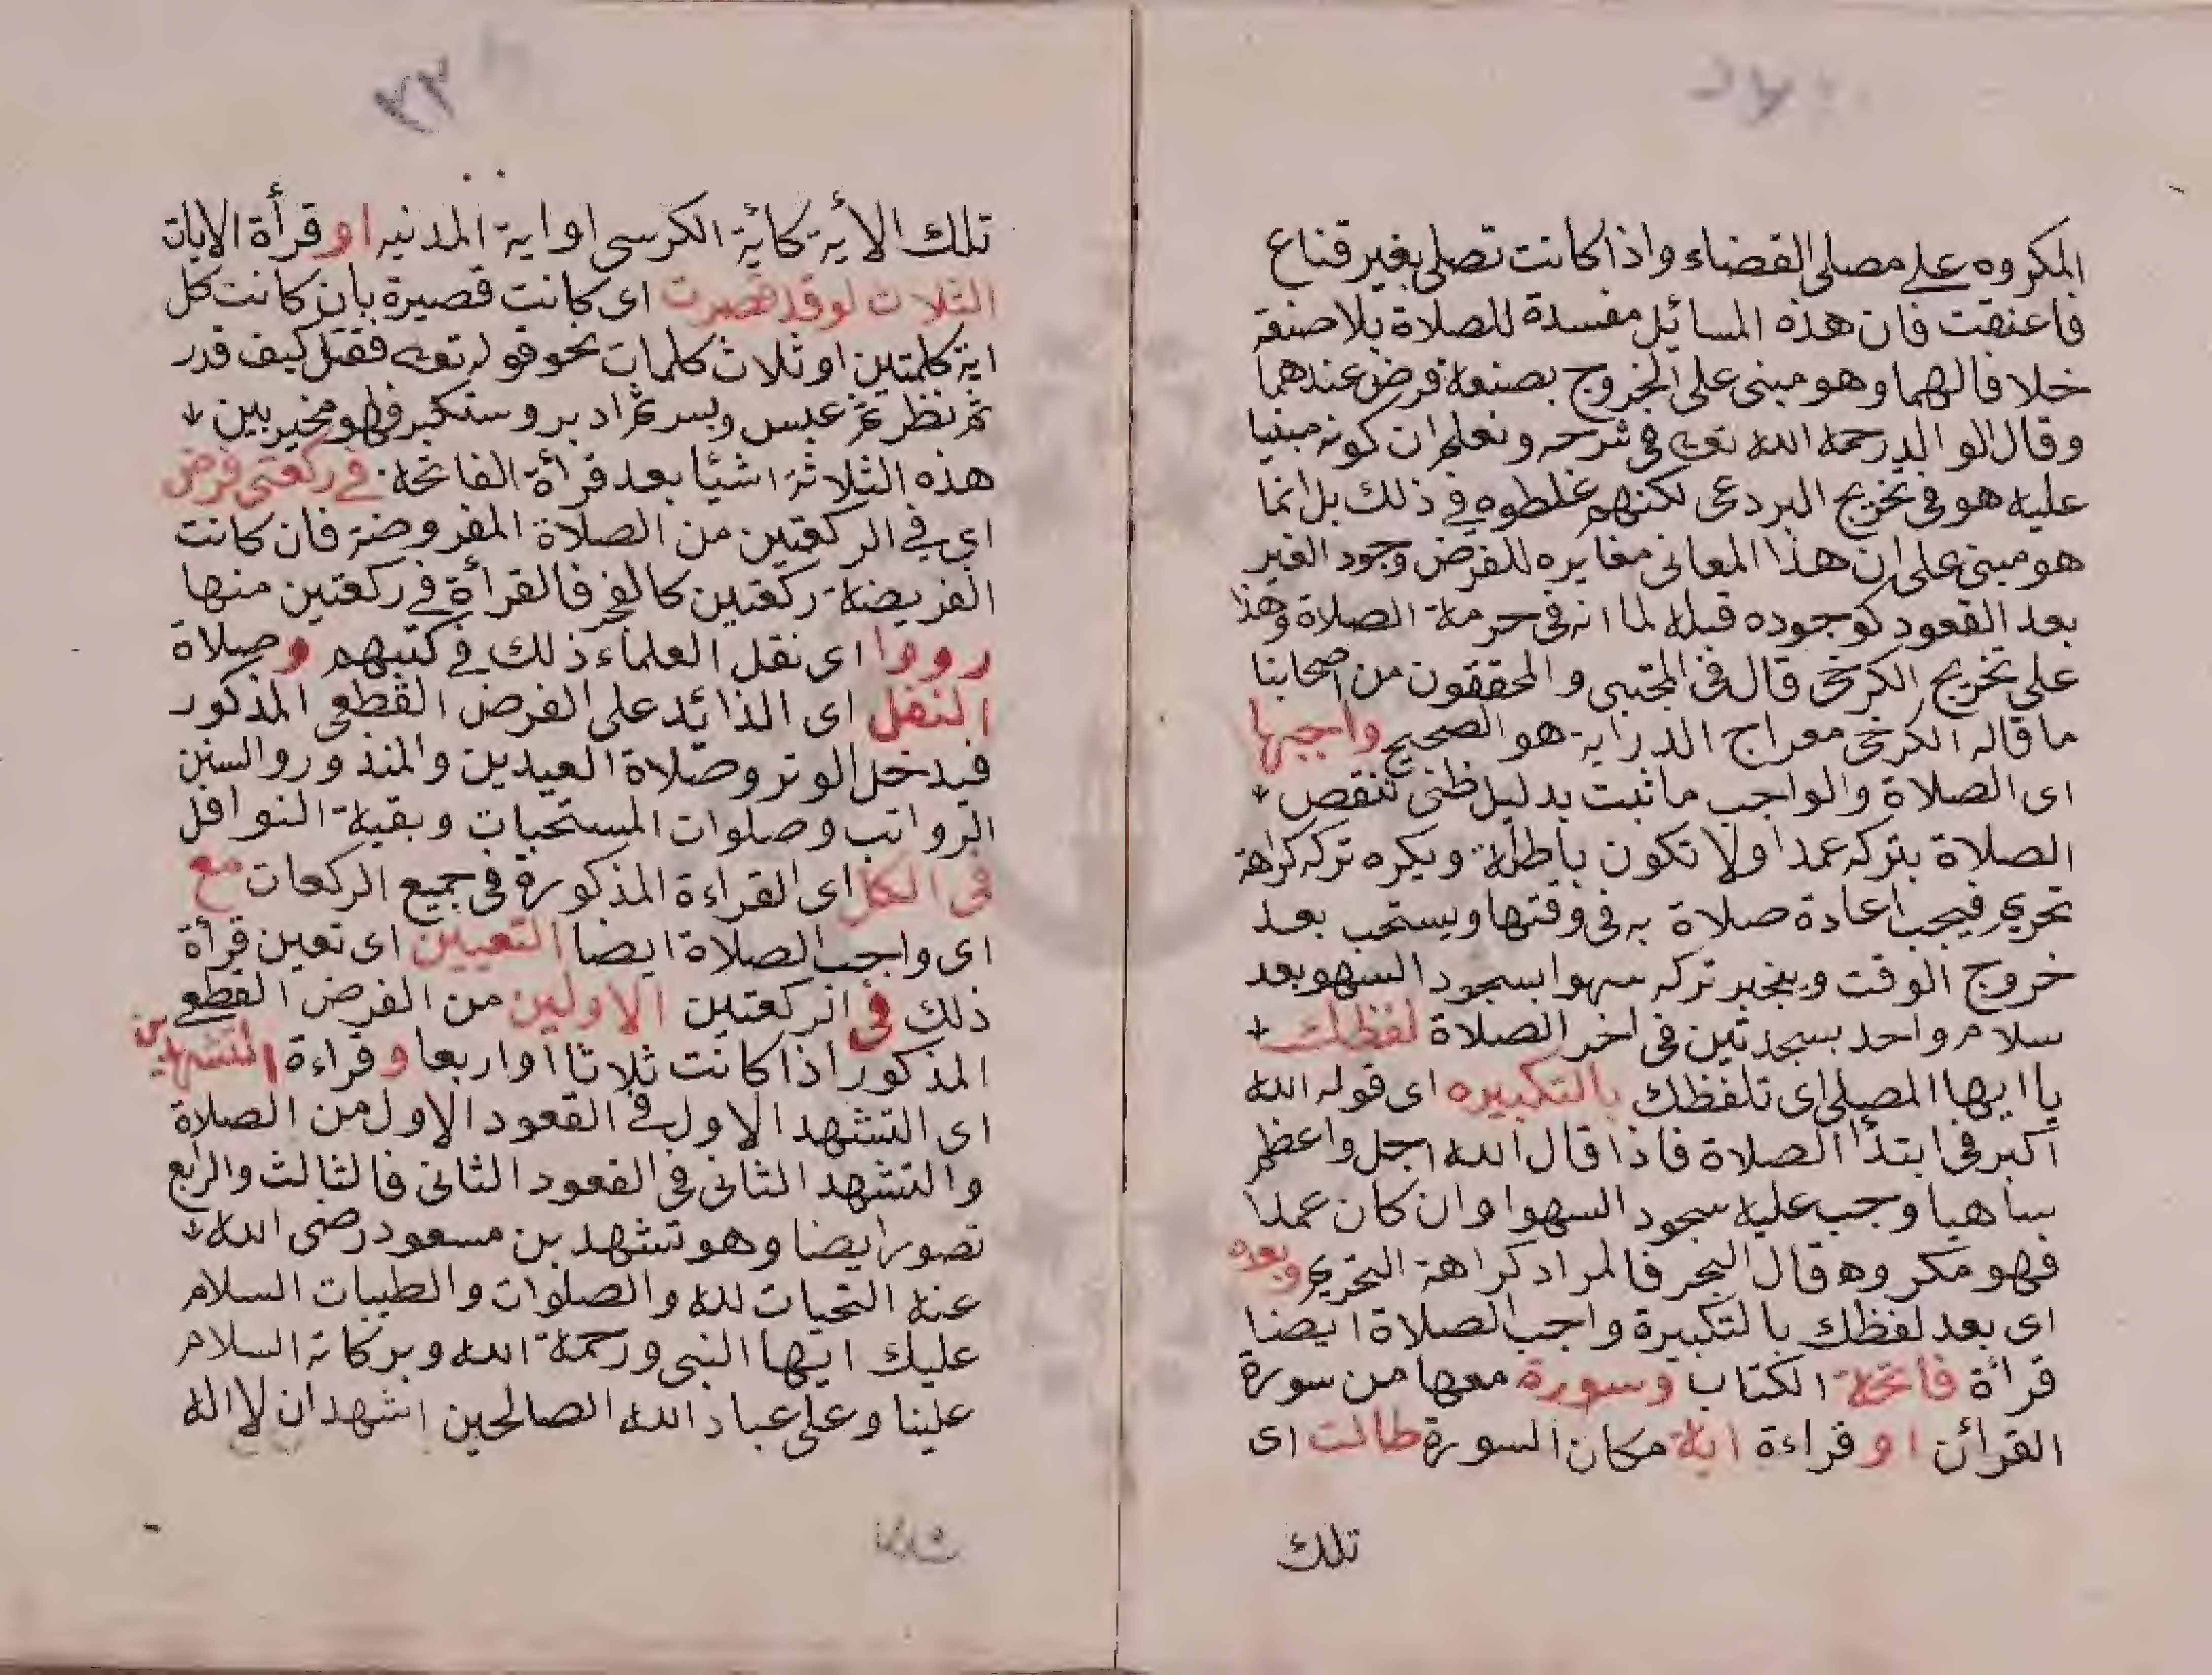 المكروه على مصلى القضاء واذا كانت تصلى بغير قناع
فاعتقت فان هذه المسائل مفسدة للصلاة بلا صنعه
خلافا لهما وهو مبنى على الخروج بصنعه فرض عندهما
وقال الوالد رحمه الله تعه في شرحه ونعلم ان كونه مبنيا
عليه هو في تخريج البردعى لكنهم غلطوه في ذلك بل انما
هو مبنى على ان هذا المعانى مغايره للفرض وجود الغير
بعد القعود كوجوده قبله لما انه في حرمة الصلاة وهذا
على تخريج الكرخى قال في المجتبى والمحققون من اصحابنا
ما قاله الكرخى معراج الدراية هو الصحيح واجبها
اى الصلاة والواجب ما ثبت بدليل ظنى تنقص
الصلاة بتركه عمدا ولا تكون باطلة ويكره تركه كراهة
تحريم فيجب اعادة صلاة به في وقتها ويستحب بعد
خروج الوقت وينجبر تركه سهوا بسجود السهو بعد
سلام واحد بسجدتين في اخر الصلاة لفظك
يا ايها المصلى اى تلفظك بالتكبيره اى قوله الله
اكبر في ابتدأ الصلاة فاذا قال الله اجل واعظم
ساهيا وجب عليه سجود السهوا وان كان عمدا
فهو مكروه قال البحر فالمراد كراهة التحريم وبعده
اى بعد لفظك بالتكبيرة واجب الصلاة ايضا
قرأة فاتحة الكتاب وسورة معها من سورة
القرأن او قراءة اية مكان السورة طالت اى
تلك
٢٣
تلك الأية كأية الكرسى او اية المدنيه او قرأة الايات
الثلاث لو قد قصرت اى كانت قصيرة بان كانت كل
اية كلمتين او ثلاث كلمات نحو قوله تعه فقتل كيف قدر
ثم نظر ثم عبس وبسر ثم ادبر وستكبر فهو مخير بين
هذه الثلاثة اشئا بعد قرأة الفاتحة في ركعتى فرض
اى في الركعتين من الصلاة المفروضة فان كانت
الفريضة ركعتين كالفجر فالقرأة في ركعتين منها
رووا اى نقل العلماء ذلك في كتبهم وصلاة
النفل اى الذائد على الفرض القطعى المذكور
فيدخل الوتر وصلاة العيدين والمنذور والسنن
الرواتب وصلوات المستحبات وبقية النوافل
في الكل اى القراءة المذكورة في جميع الركعات مع
اى واجب الصلاة ايضا التعيين اى تعين قرأة
ذلك في الركعتين الاولين من الفرض القطعى
المذكور اذا كانت ثلاثا او اربعا وقراءة التشهدين
اى التشهد الاول في القعود الاول من الصلاة
والتشهد الثانى في القعود الثانى فالثالث والرابع
تصور ايضا وهو تشهد بن مسعود رضى الله
عنه التحيات لله والصلوات والطيبات السلام
عليك ايها النبى ورحمة الله وبركاته السلام
علينا وعلى عباد الله الصالحين اشهد ان لا اله